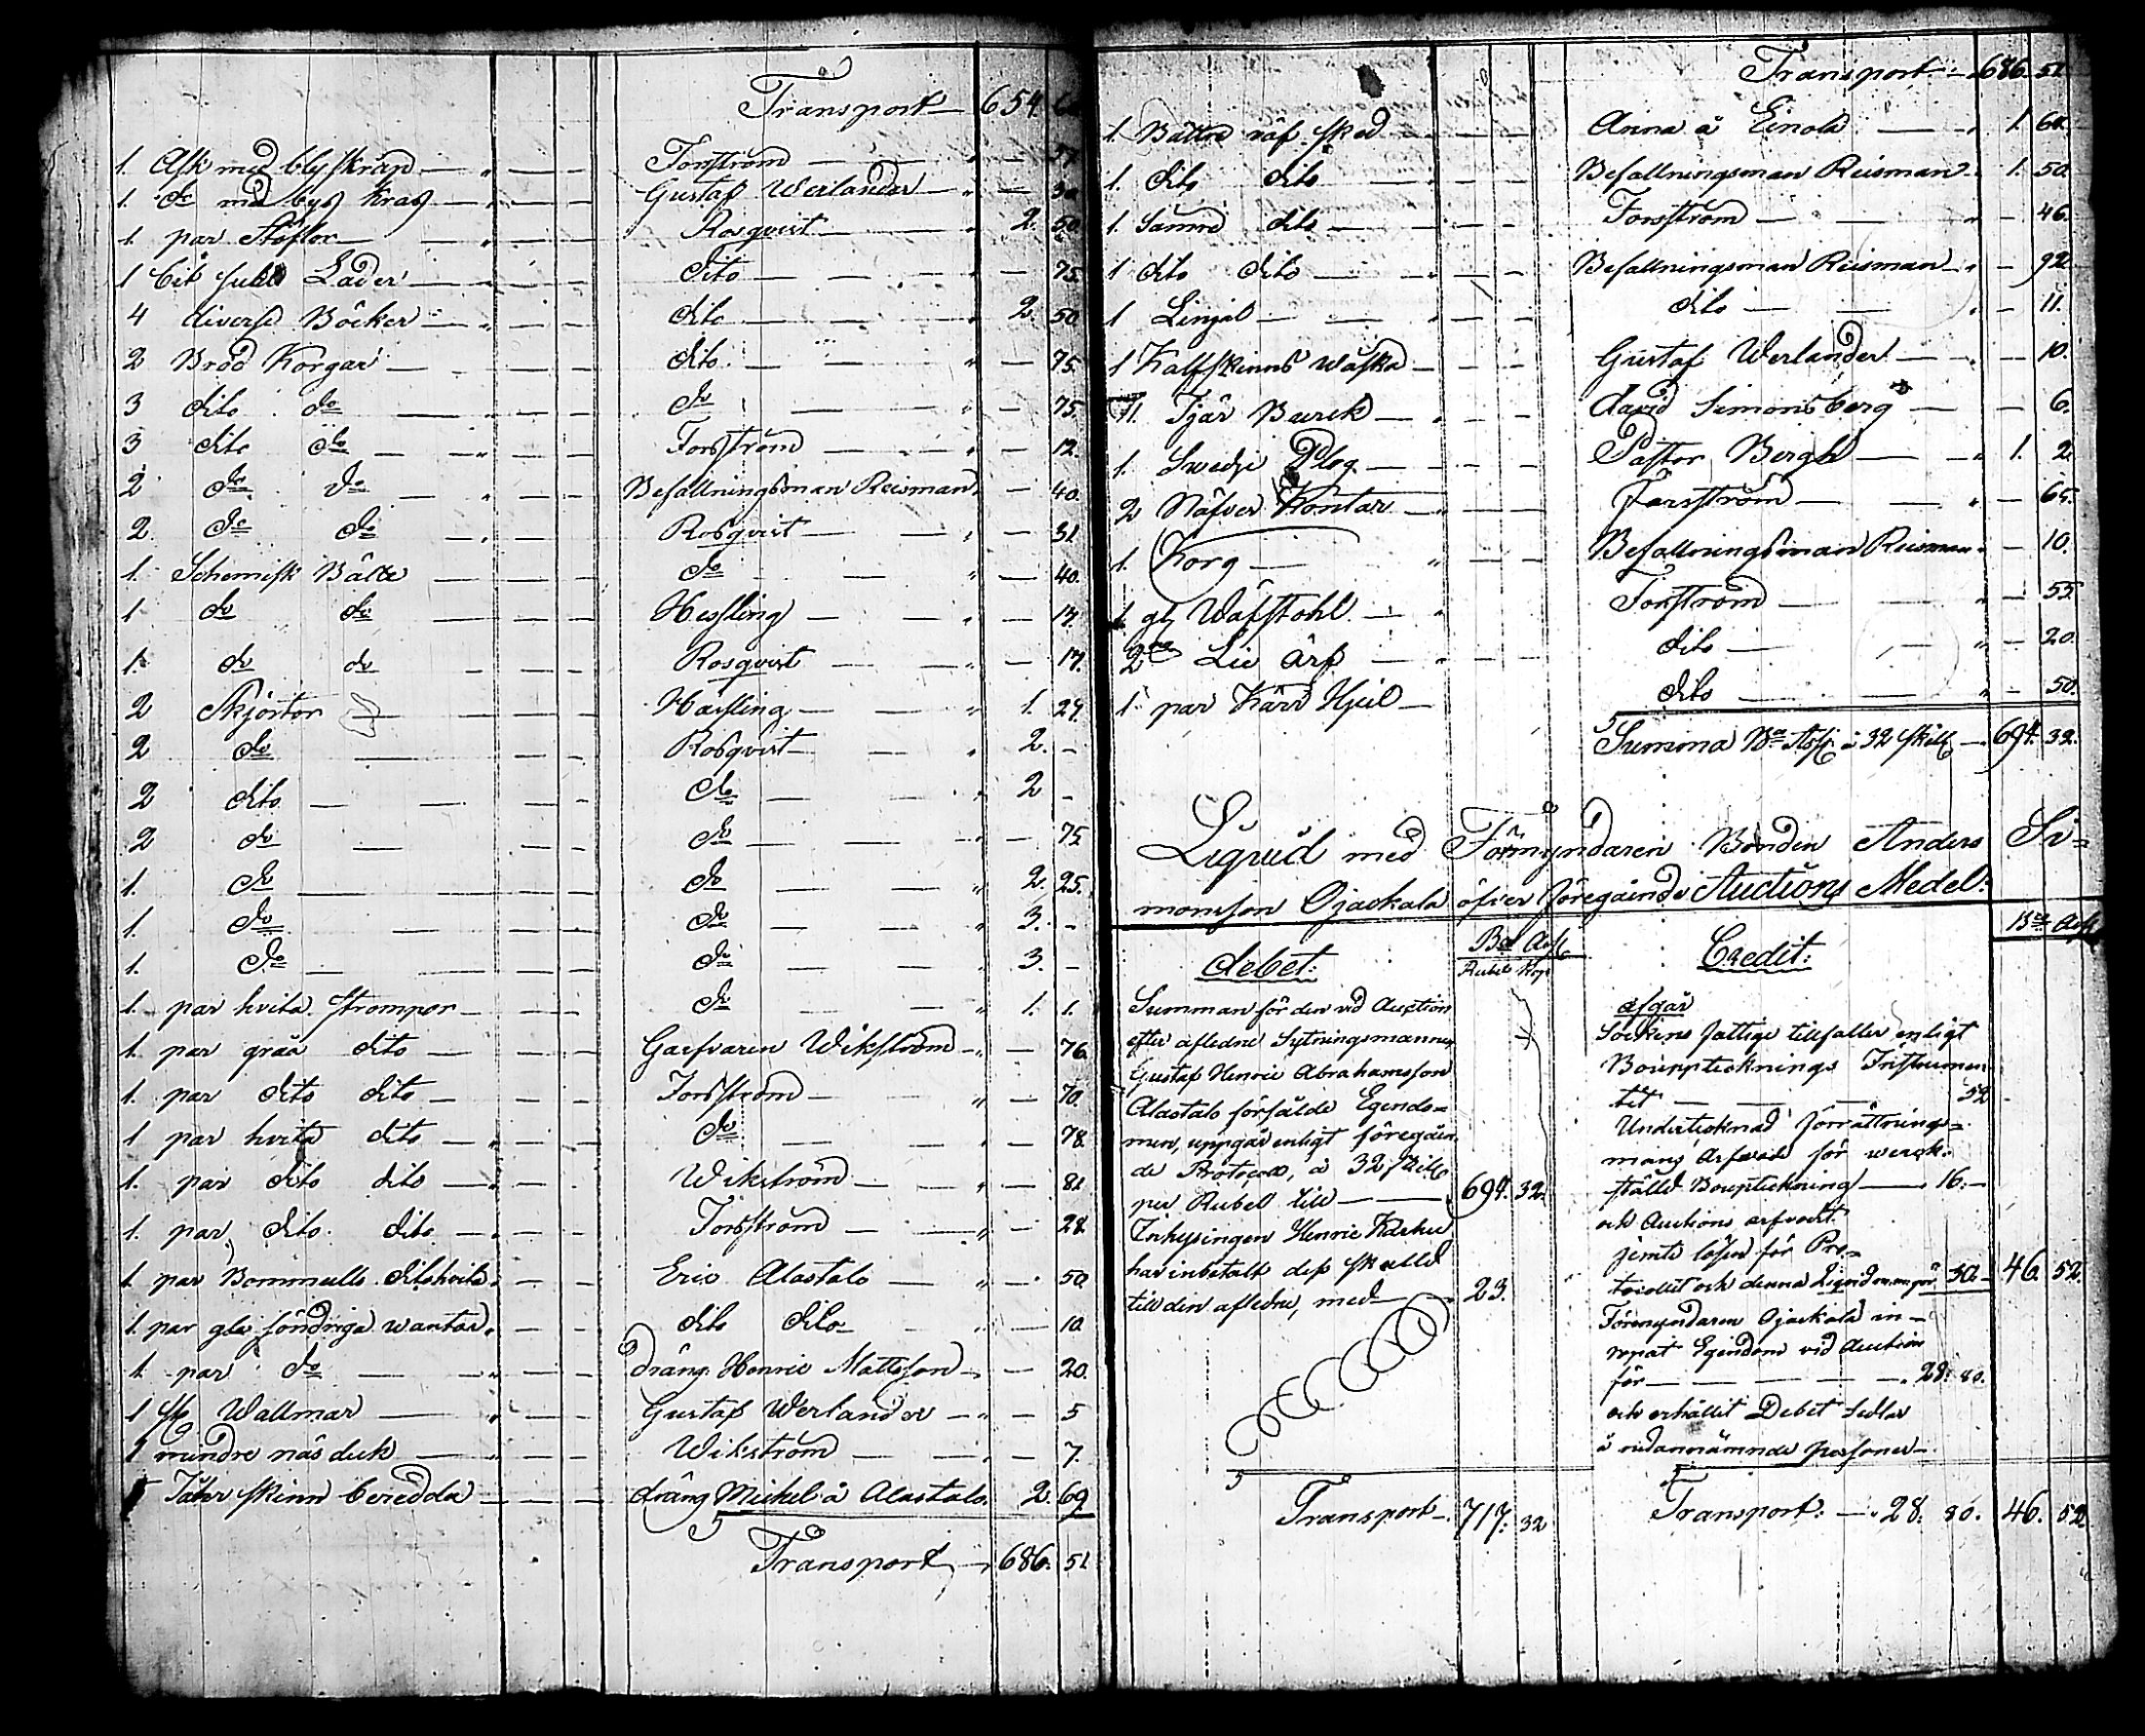 Transport 654.
1. Ask med blyskrap Forsström
1. do med Gustaf Werlander 30
1. par Stöflor Rosqvist 2. 50
1 bit Läder dito 75.
4 diverse Böcker dito 2. 50
2 Bröd Korgar dito 75.
3 dito do do 75.
3 dito do Forsström 12.
2 do do Befallningsman Reisman 40.
2. do do Rosqvist 31
1. Bälte do 40.
1 do do Hessling 17.
1. do do Rosqvist 17.
2 Skjortor Hessling 1. 27.
2 do Rosqvist 2. -
2 dito do 2 -
2 do do 75
1. do do 2. 25.
1. do do 3. -
1. do do 3. -
1. par hvita Strumpor do 1. 1.
1. par gråa dito Garfvaren Wikström 76.
1. par dito dito Forsström 70.
1 par hvita dito do 78.
1. par dito dito Wikström 81
1. par dito dito Forsström 28.
1 par Bommulls dito hvita Eric Alastalo 50.
1. par gla söndriga wantar dito dito 10
1 par do dräng Henric Mattsson 20.
1 Wallmar Gustaf Werlander 5
1 mindre näsduk Wikström 7.
skinn beredda dräng Michel å Alastalo 2. 69
Transport 686. 51
Transport 686. 51
1. Bättre Anna å Einola 1. 60.
1. dito dito Befallningsman Reisman 1. 50.
1. Sämre dito Forsström 46.
1 dito dito Befallningsman Reisman 92
1 Linjal dito 11.
1 Kalfskinns wäska Gustaf Werlander 10.
1. Tjär David Simonsberg 6.
1. Swedje Plog Pastor Bergh 1. 2
2 Näfver Kontar Forsström 65.
1. Korg Befallningsman Reisman 10.
1. gl Wäfstohl Forsström 55.
2 Lie Orf dito 20.
1. par Kärr Hjul dito 50.
Summa Bco Ass à 32 skill 694. 32.
Liqvid med Förmyndaren Bonden Anders Si=
monsson Ojaskala öfver föregående Auctions Medel:
Bco Ass
Debet: Bco Ass
Rubel Kop
Credit:
Summan för den vid Auction
efter aflednе Sytningsmannen
Gustaf Henric Abrahamsson
Alastalo försålde Egendo=
men, uppgår enligt föregåen
de Protocoll, à 32 skill
per Rubel till 694. 32.
Inhysingen Henric
har inbetalt dess skulld
till den aflednе, med 23.
Transport 717. 32
afgår
Sockens fattige tillfaller enligt
Bouppteknings Instrumen
tet 52
Undertecknad förrättnings=
mans Arfvode för werk=
ställd Bouppteckning 16. -
och Auctions arfvode
jemte lösen för Pro=
tocollet och denna Liqvid 30. - 46. 52.
Förmyndaren Ojaskala in=
ropat Egendom vid Auction
för 28. 80.
och erhållit Debet Sedlar
å nedannämnde personer
Transport: 28. 80. 46. 52